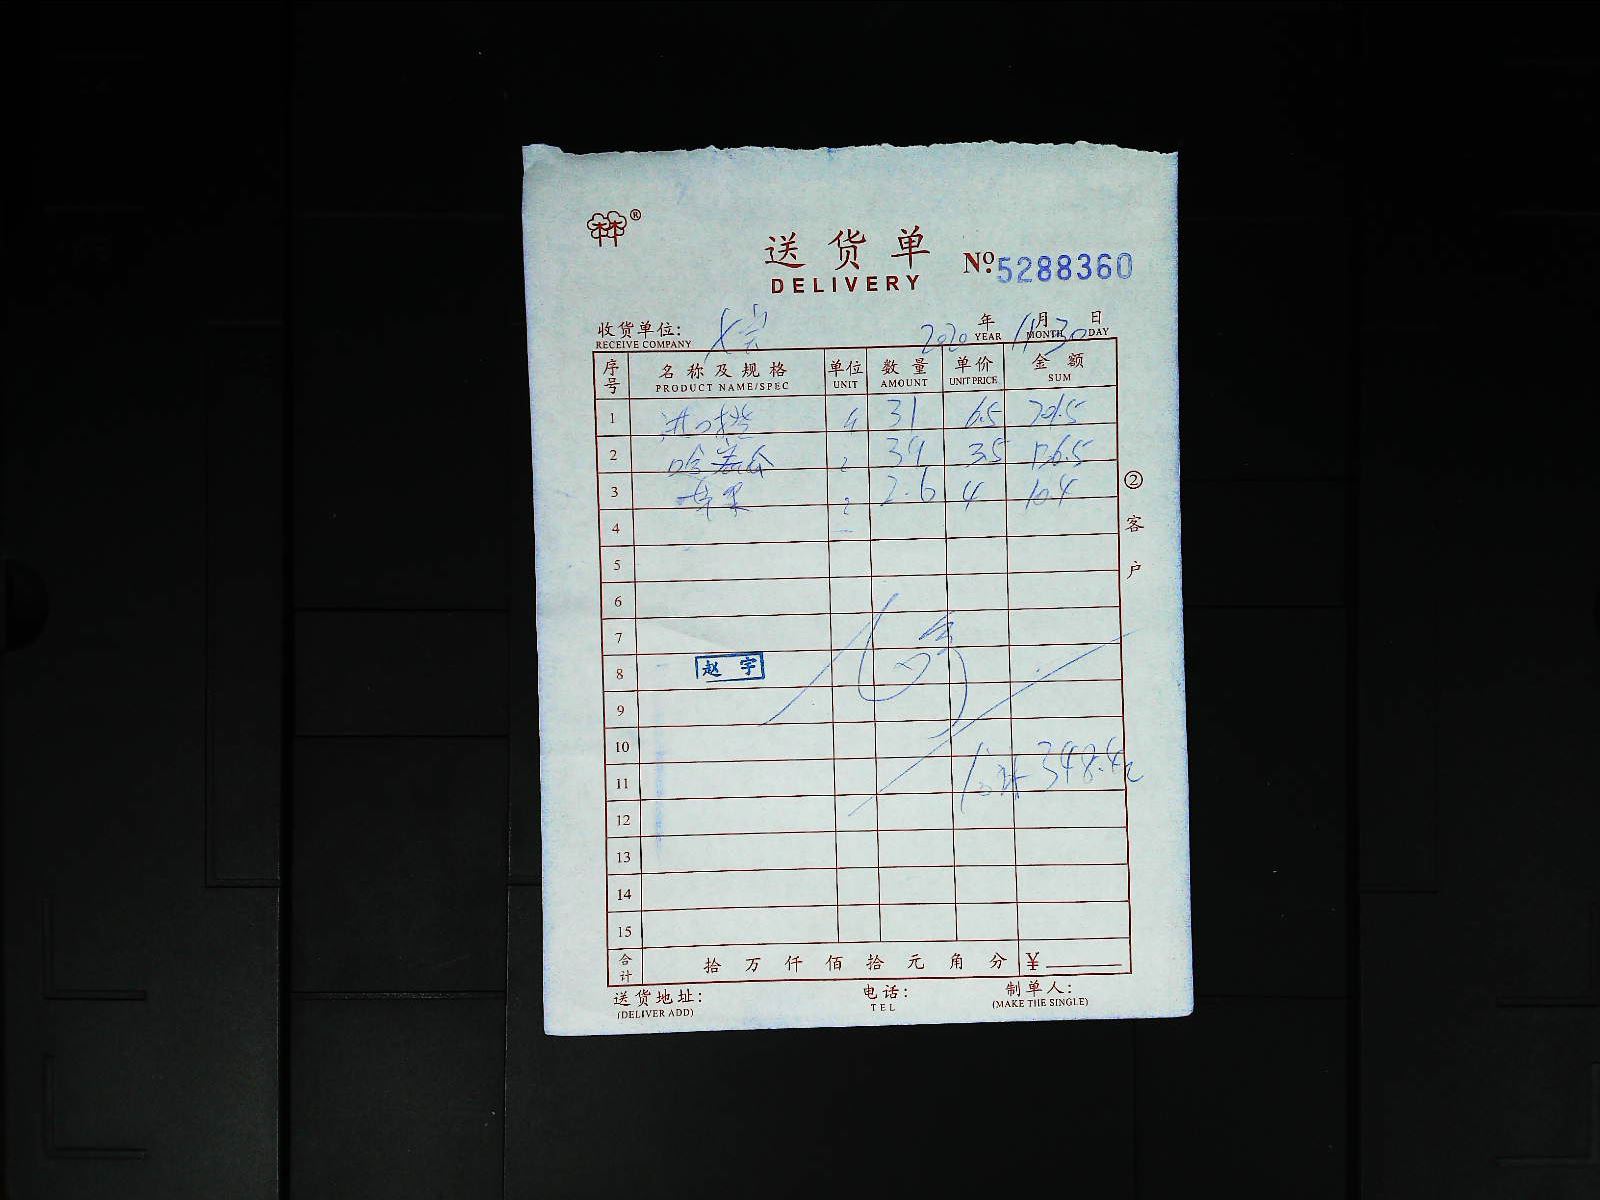 ®
送货单
DELIVERY
No.5288360
收货单位:
RECEIVE COMPANY
2020 年 11 月 30 日
YEAR MONTH DAY
序号 名称及规格 单位 数量 单价 金额
PRODUCT NAME/SPEC UNIT AMOUNT UNIT PRICE SUM
1 31 6.5 201.5
2 39 3.5 136.5
3 苹果 2.6 4 10.4
4
5
6
7
8 赵宇
9
10
11 合计 348.4元
12
13
14
15
合计 拾 万 仟 佰 拾 元 角 分 ¥
送货地址: 电话: 制单人:
(DELIVER ADD) TEL (MAKE THE SINGLE)
②客户